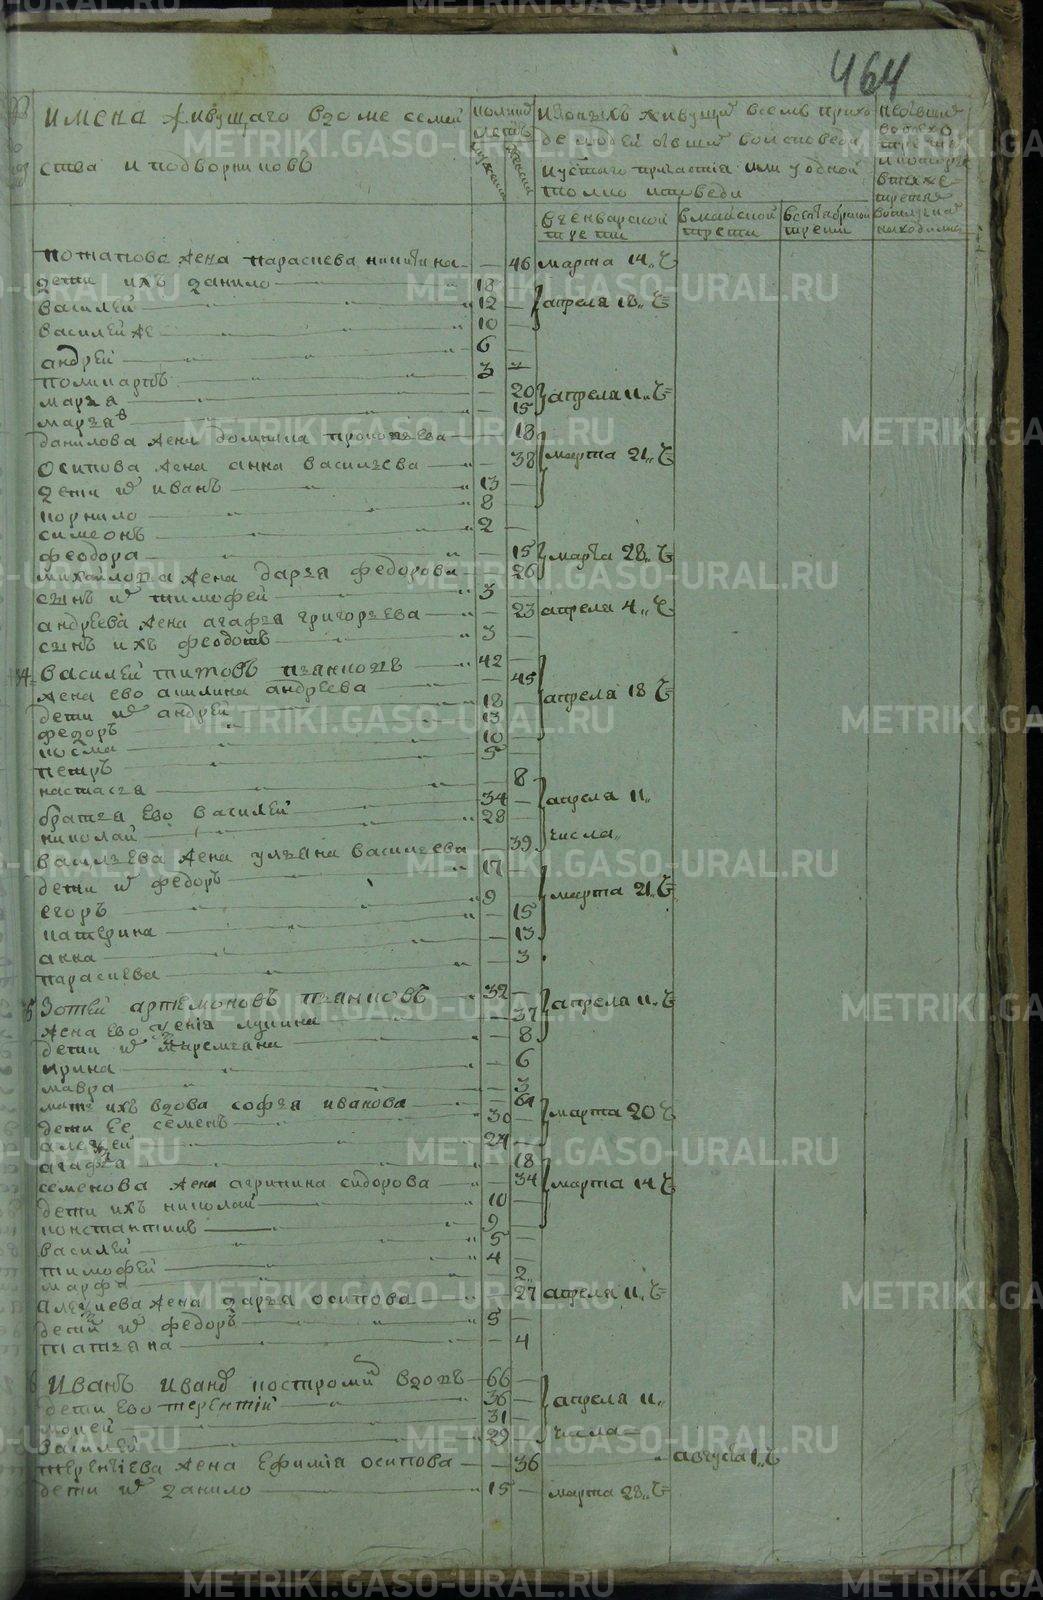 464
имена живущаго вдоме семей
ства и подворниковъ
коликі летъ
мужеска женска
де людей бывши
и святаго причастія или у одной
толко исповеди
вгенварской трети
вмайской трети
всентябрской трети
потапова жена параскева никитина — 46 марта 14 ч
дети ихъ данило — 18
василей — 12 апреля 18 ч
василей же — 10
андрей — 6
поликарпъ — 3
марѳа — 20 апреля 11 ч
марѳа — 15
данилова жена домнина прокопьева — 18
осипова жена анна васильева — 38 марта 21 ч
дети их иванъ — 13
корнило — 8
симеонъ — 2
феодора — 15 марта 28 ч
михайлова жена дарья федорова — 26
сынъ их тимофей — 3
андреева жена агафья григорьева — 23 апреля 4 ч
сынъ ихъ феодотъ — 3
34 василей титовъ пьянковъ — 42
жена ево акилина андреева — 45
дети их андрей — 18 апреля 18 ч
федоръ — 13
косма — 10
петръ — 5
настасья — 8
братья ево василей — 34 апреля 11
николай — 28 числа
васильева жена ульяна васильева — 39
дети их федоръ — 17
егоръ — 9 марта 21 ч
катерина — 15
анна — 13
параскева — 3
Зотей артемоновъ пьянковъ — 32 апреля 11 ч
жена ево ксенія лукина — 37
дети их — 8
ирина — 6
мавра — 3
мать ихъ вдова софья иванова — 64 марта 20 ч
дети ее семенъ — 30
алексей — 24
агафья — 18
семенова жена агрипина сидорова — 34 марта 14 ч
дети ихъ николай — 10
константинъ — 9
василей — 5
тимофей — 4
марфа — 2
алексиева жена дарья осипова — 27 апреля 11 ч
дети их федоръ — 5
татьяна — 4
Иванъ иванов костромин вдовъ — 66
дети ево терентій — 36 апреля 11
мокей — 31
василей — 29 числа
терентіева жена Ефимія осипова — 36 августа 1 ч
дети их данило — 15 марта 28 ч
METRIKI.GASO-URAL.RU